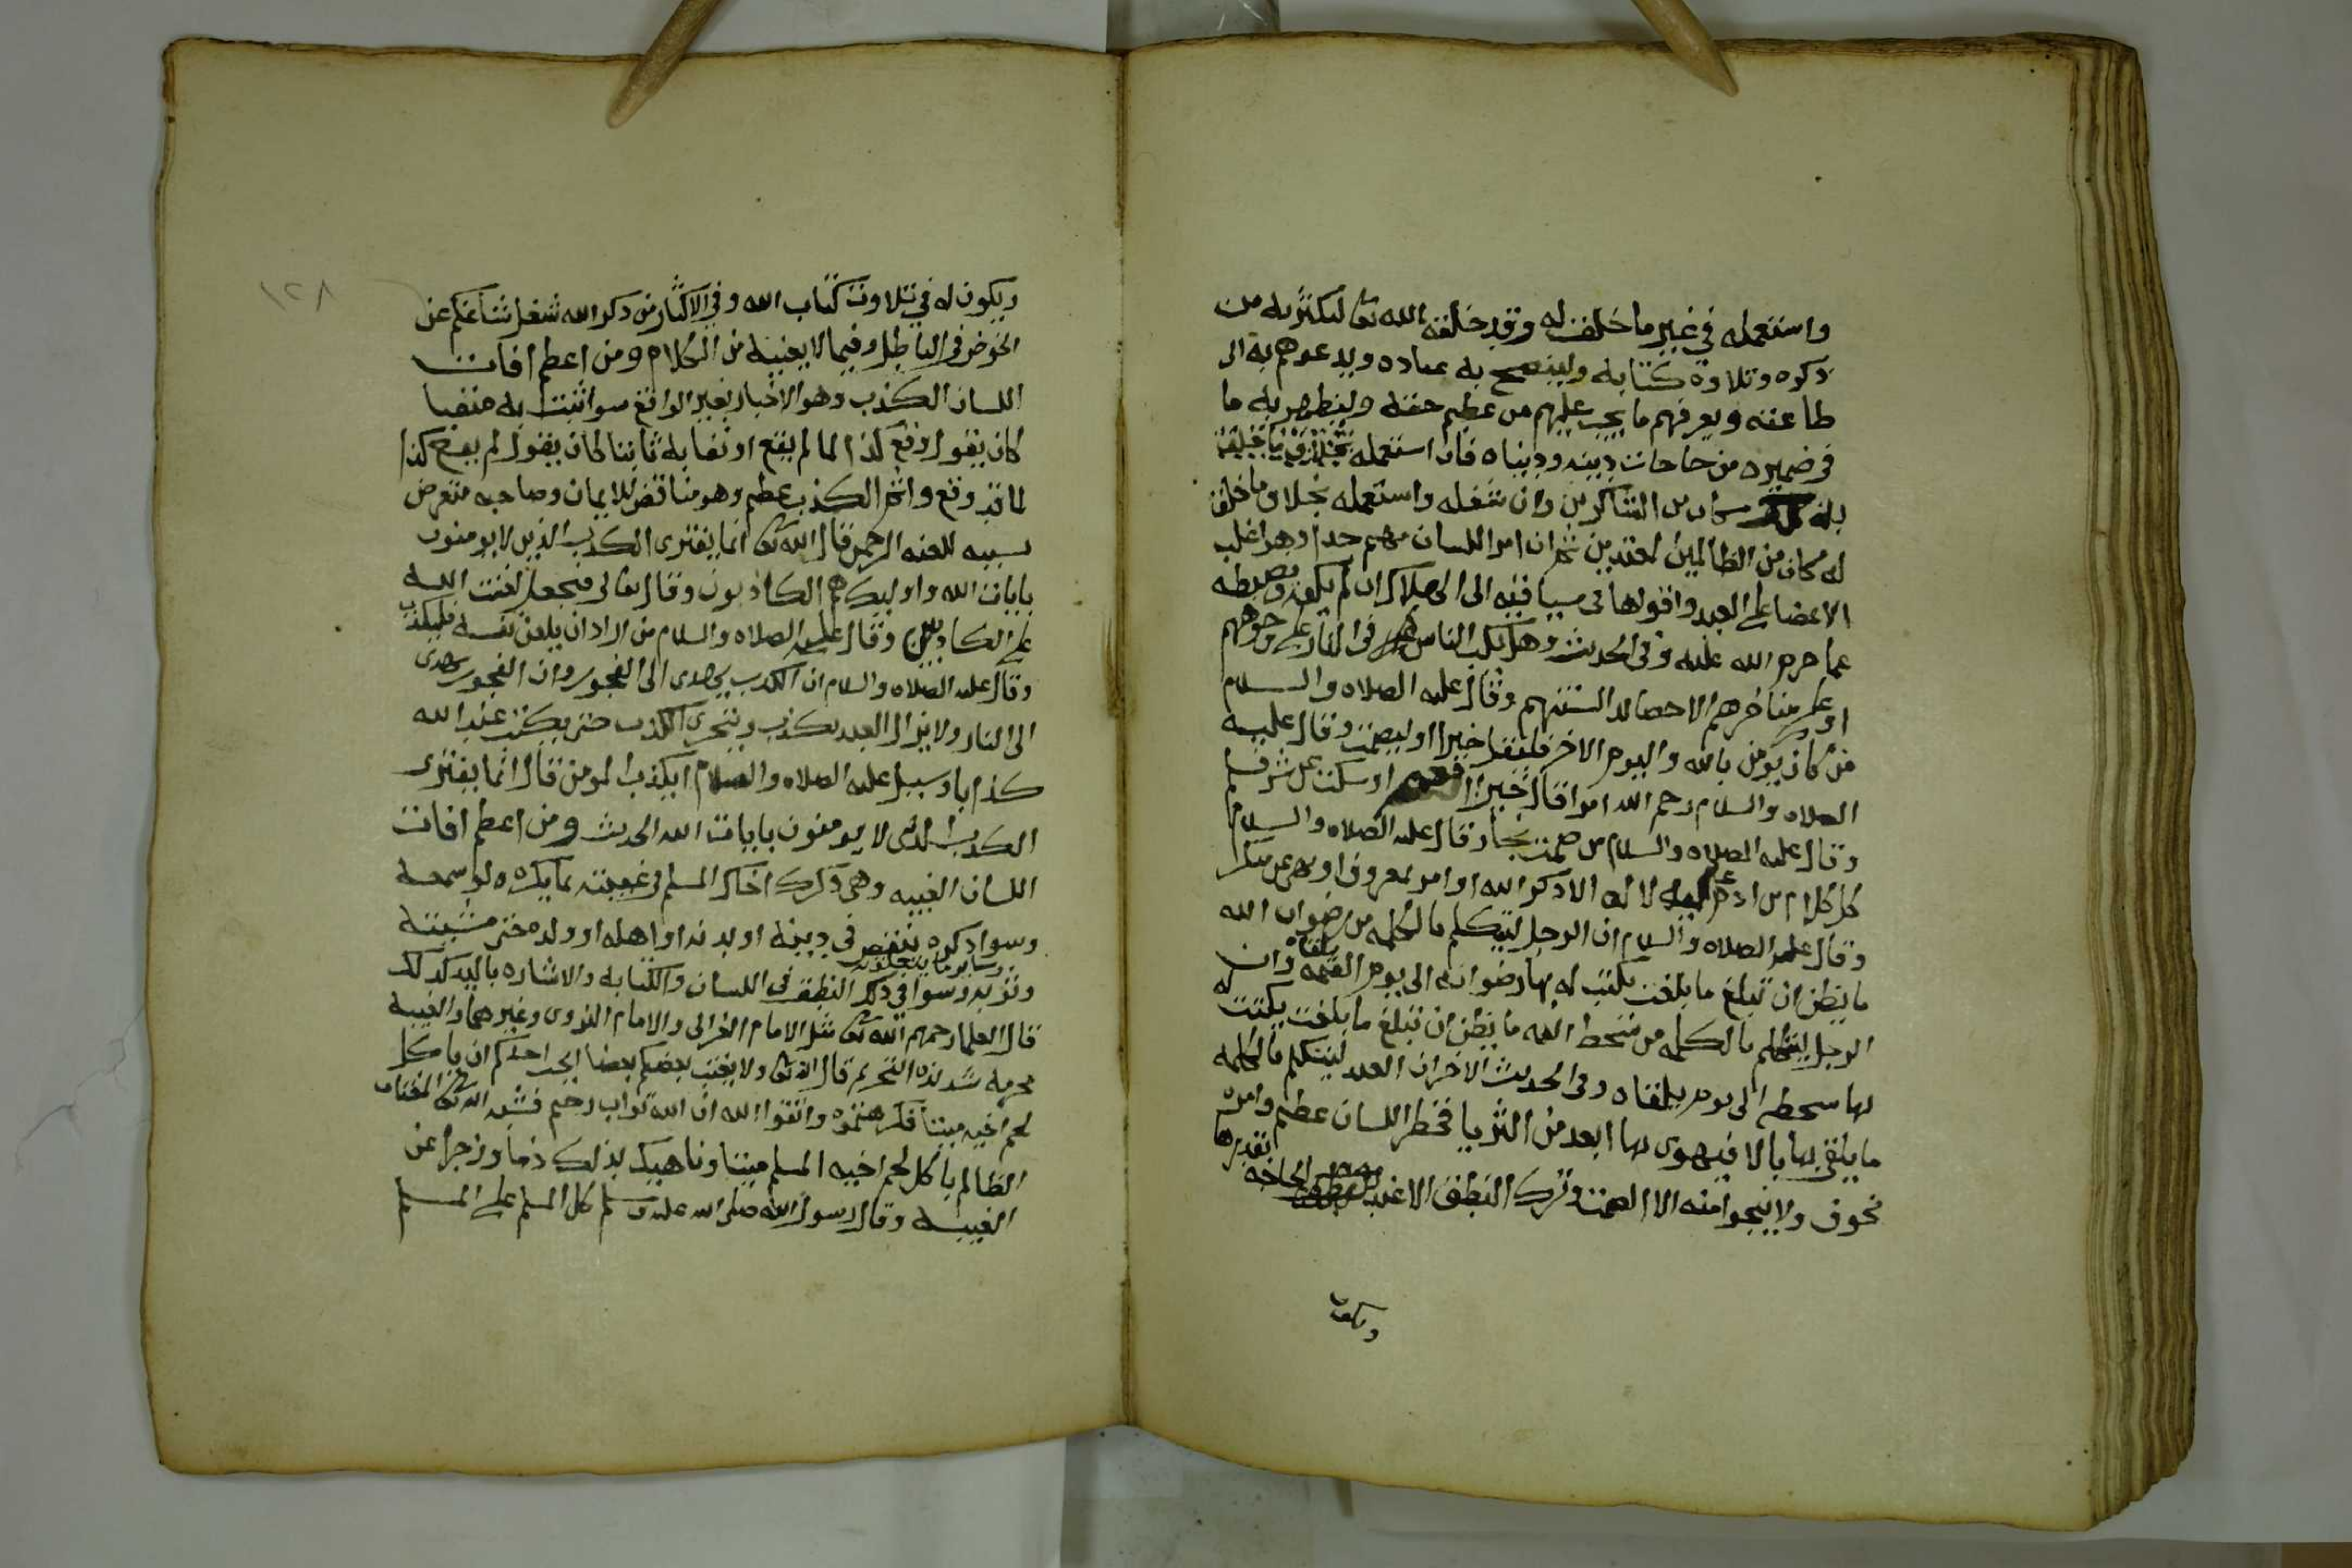 واستعمله في غير ما خلق له وقد خلقه الله تعا ليكثر به من
ذكره وتلاوة كتابه ولينصح به عباده ويدعوهم به الى
طاعته ويعرفهم ما يجب عليهم من عظيم حقه وليظهر به ما
في ضميره من حاجات دينه ودنياه فان استعمله فيما خلق
له كان من الشاكرين وان شغله واستعمله بخلاف ما خلق
له كان من الظالمين المعتدين ثم ان امر اللسان مهم جدا وهو اغلب
الاعضا على العبد واقواها في سياقته الى الهلاك ان لم يكفه ويضبطه
عما حرم الله عليه وفي الحديث وهل يكب الناس في النار على وجوههم
او على مناخرهم الا حصايد السنتهم وقال عليه الصلاه والسلام
من كان يومن بالله واليوم الاخر فليقل خيرا او ليصمت وقال عليه
الصلاه والسلام رحم الله امرا قال خيرا فغنم او سكت عن شر فسلم
وقال عليه الصلاه والسلام من صمت نجا وقال عليه الصلاه والسلام
كل كلام بن ادم عليه لا له الا ذكر الله او امر بمعروف او نهي عن منكر
وقال عليه الصلاه والسلام ان الرجل ليتكلم بالكلمه من رضوان الله
ما يظن ان تبلغ ما بلغت يكتب له بها رضوانه الى يوم القيمه يلقاه وان
الرجل ليتكلم بالكلمه من سخط الله ما يظن ان تبلغ ما بلغت يكتب له
بها سخطه الى يوم يلقاه وفي الحديث الاخر ان العبد ليتكلم بالكلمه
ما يلقي لها بالا فيهوى بها ابعد من الثريا فخطر اللسان عظيم وامره
مخوف ولا ينجوا منه الا الصمت وترك النطق الا عند الحاجه بقدرها
ويكون
١٢٨
ويكون له في تلاوت كتاب الله وفي الاكثار من ذكر الله شغل شاغلكم عن
الخوض في الباطل وفيما لا يعنيه من الكلام ومن اعظم افات
اللسان الكذب وهو الاخبار بغير الواقع سوا اثبت به منفيا
كان يقول وقع كذا لما لم يقع او نفا به ثابتا كان يقول لم يقع كذا
لما قد وقع واثم الكذب عظيم وهو مناقض للايمان وصاحبه متعرض
بسببه للعنه الرحمن قال الله تعا انما يفترى الكذب الذين لا يومنون
بايات الله واوليك هم الكاذبون وقال تعالى فنجعل لعنت الله
على الكاذبين وقال عليه الصلاه والسلام من اراد ان يلعن نفسه فليكذب
وقال عليه الصلاه والسلام ان الكذب يهدى الى الفجور وان الفجور يهدى
الى النار ولا يزال العبد يكذب ويتحرى الكذب حتى يكتب عند الله
كذابا وسيل عليه الصلاه والسلام ايكذب المومن قال انما يفترى
الكذب الذى لا يومنون بايات الله الحديث ومن اعظم افات
اللسان الغيبه وهي ذكرك اخاك المسلم في غيبته بما يكره ولو سمعه
وسوا ذكره بنقص في دينه او بدنه او اهله او ولده حتى مشيته
وثوبه وساير ما يتعلق به وسوا في ذلك النطق في اللسان والكتابه والاشاره باليد كذلك
قال العلما رحمهم الله تعا مثل الامام الغزالى والامام النووى وغيرهما والغيبه
محرمه شديده التحريم قال الله تعا ولا يغتب بعضكم بعضا ايحب احدكم ان ياكل
لحم اخيه ميتا فكرهتموه واتقوا الله ان الله تواب رحيم فشبه الله تعا المغتاب
الظالم باكل لحم اخيه المسلم ميتا وناهيك بذلك ذما وزجرا عن
الغيبه وقال رسول الله صلى الله عليه وسلم كل المسلم على المسلم